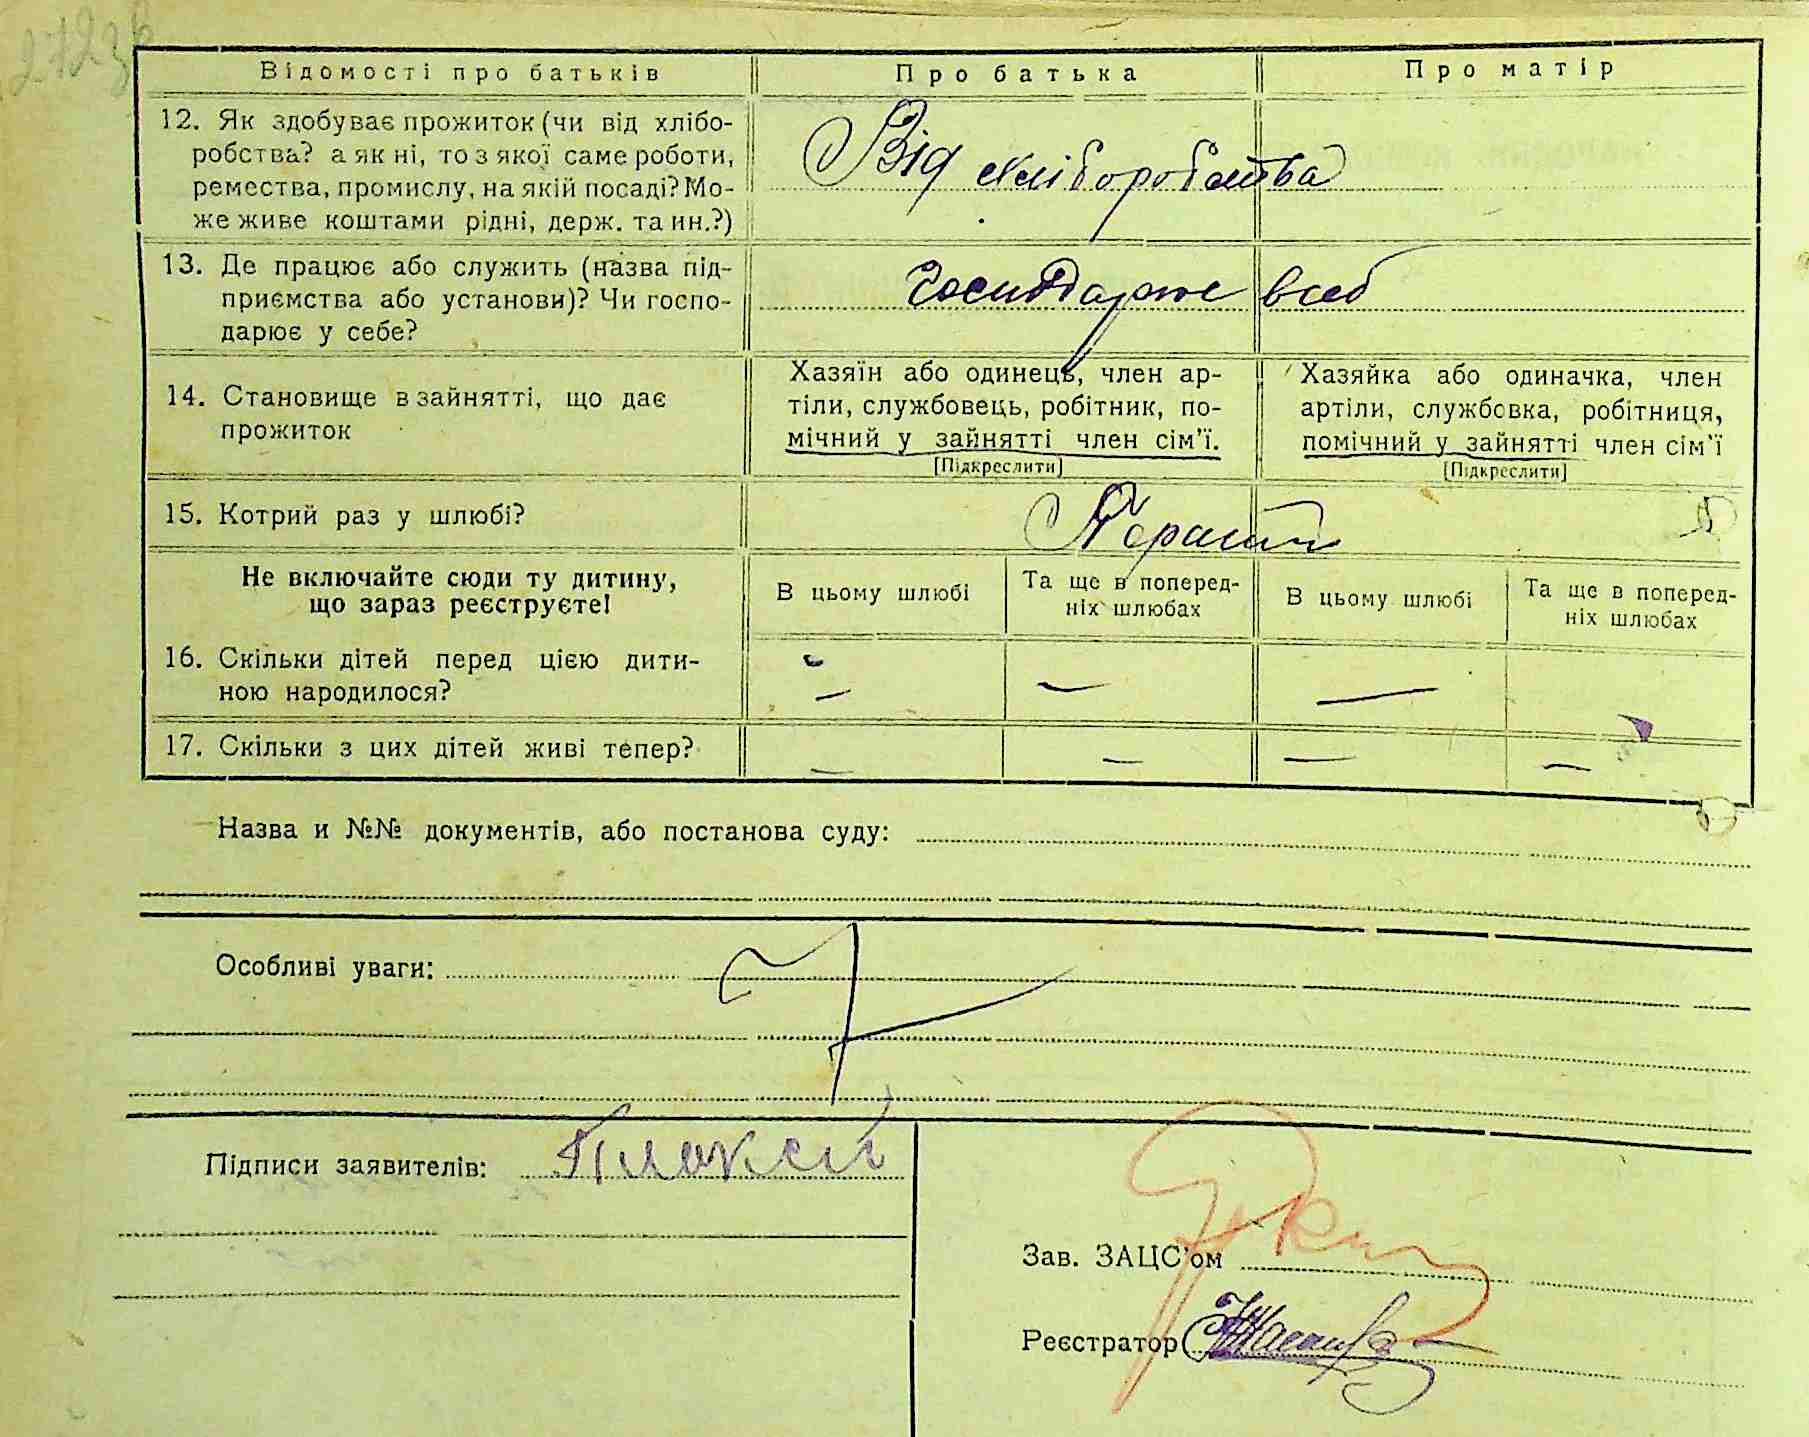 Відомості про батьків Про батька Про матір
12. Як здобуває прожиток (чи від хлібо-
робства? а як ні, то з якої саме роботи,
ремества, промислу, на якій посаді? Мо-
же живе коштами рідні, держ. та ин.?)
Від хліборобства
13. Де працює або служить (назва під-
приємства або установи)? Чи госпо-
дарює у себе?
Господарює в себ
14. Становище в зайнятті, що дає
прожиток
Хазяїн або одинець, член ар-
тіли, службовець, робітник, по-
мічний у зайнятті член сім'ї.
[Підкреслити]
Хазяйка або одиначка, член
артіли, службовка, робітниця,
помічний у зайнятті член сім'ї
[Підкреслити]
15. Котрий раз у шлюбі?
Не включайте сюди ту дитину,
що зараз реєструєте!
В цьому шлюбі
Та ще в поперед-
ніх шлюбах
В цьому шлюбі
Та ще в поперед-
ніх шлюбах
16. Скільки дітей перед цією дити-
ною народилося?
— — —
17. Скільки з цих дітей живі тепер?
— — — —
Назва и №№ документів, або постанова суду:
Особливі уваги:
Підписи заявителів:
Зав. ЗАЦС'ом
Реєстратор